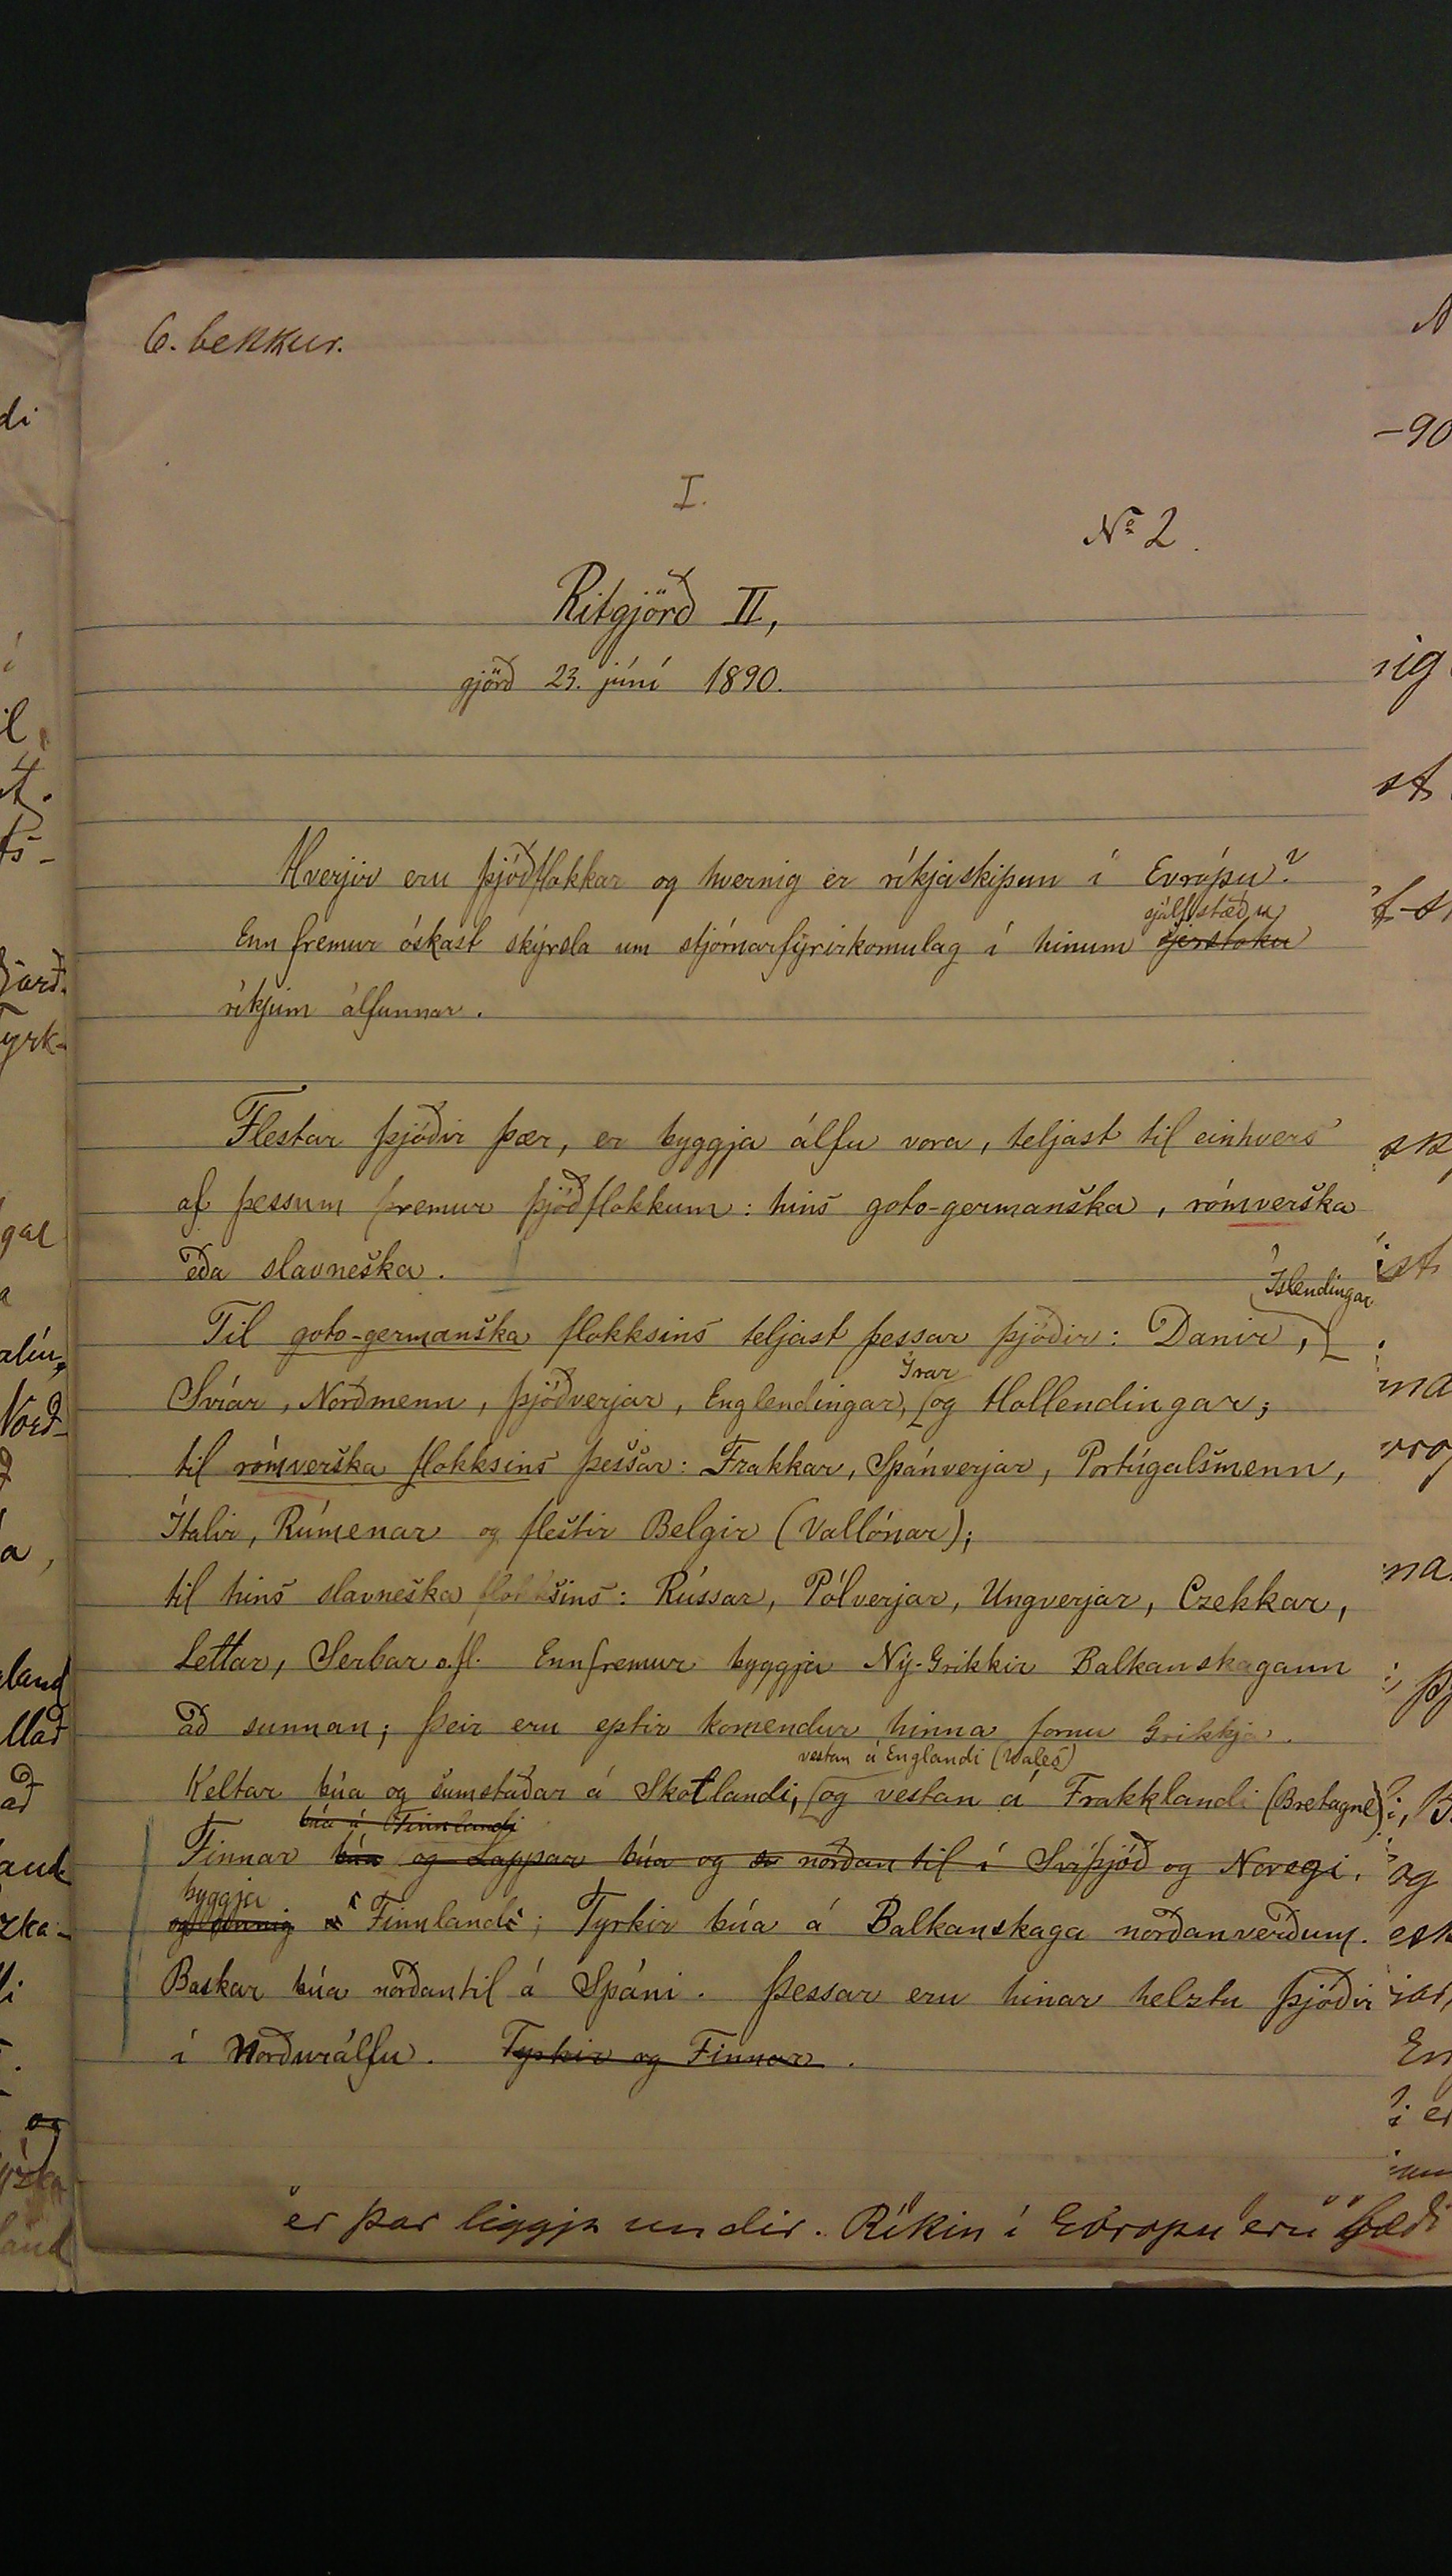 6. bekkur.
I.
No 2.
Ritgjörð II,
gjörð 23. júní 1890.
Hverjir eru þjóðflokkar og hvernig er ríkjaskipun í Evrópu?
sjálfstæðu
Enn fremur óskast skýrsla um stjórnarfyrirkomulag í hinum sjerstöku
ríkjum álfunnar.
Flestar þjóðir þær, er byggja álfu vora, teljast til einhvers
af þessum þremur þjóðflokkum: hins goto-germanska, rómverska
eða slavneska.
Íslendingar
Til goto-germanska flokksins teljast þessar þjóðir: Danir,
Írar
Svíar, Norðmenn, Þjóðverjar, Englendingar, og Hollendingar;
til rómverska flokksins þessar: Frakkar, Spánverjar, Portúgalsmenn,
Ítalir, Rúmenar og flestir Belgir (Vallónar);
til hins slavneska flokksins: Rússar, Pólverjar, Ungverjar, Czekkar,
Lettar, Serbar o.fl. Ennfremur byggja Ný-Grikkir Balkanskagann
að sunnan; þeir eru eptir komendur hinna fornu Grikkja.
vestan á Englandi (Wales)
Keltar búa og sumstaðar á Skotlandi, og vestan á Frakklandi (Bretagne);
búa á Finnlandi
Finnar búa og Lappar búa og norðan til í Svíþjóð og Noregi.
byggja
og einnig Finnland; Tyrkir búa á Balkanskaga norðanverðum.
Baskar búa norðantil á Spáni. Þessar eru hinar helztu þjóðir
í Norðurálfu. Tyrkir og Finnar.
er þar liggja undir. Ríkin í Evropu eru bæði